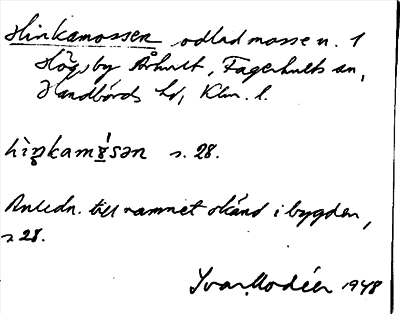 Hinkamossen odlad mosse n. 1
Högsby Århult, Fagerhults sn,
Handbörds hd, Klm. l.
s. 28.
Anledn. till namnet okänd i bygden,
s. 28.
Ivar Modéer 1948